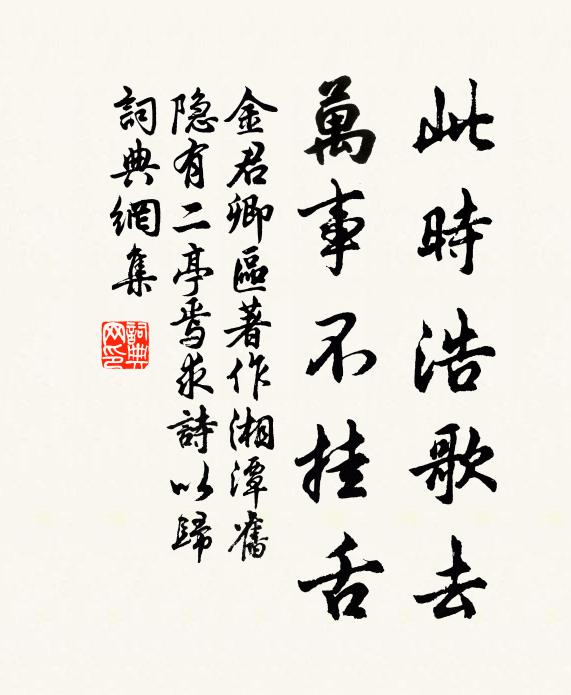 此時浩歌去
萬事不挂舌
金君卿區著作湘潭舊
隐有二亭焉求詩以歸
詞典網集
詞典网印